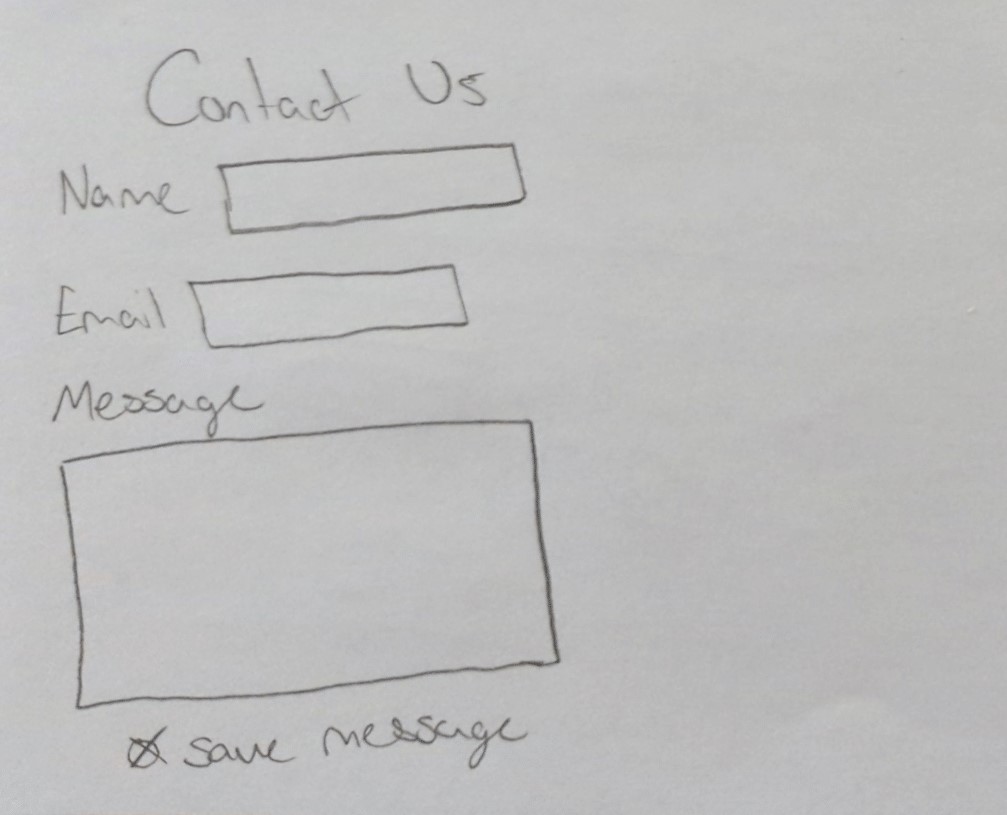 Contact Us
Name
Email
Message
save message